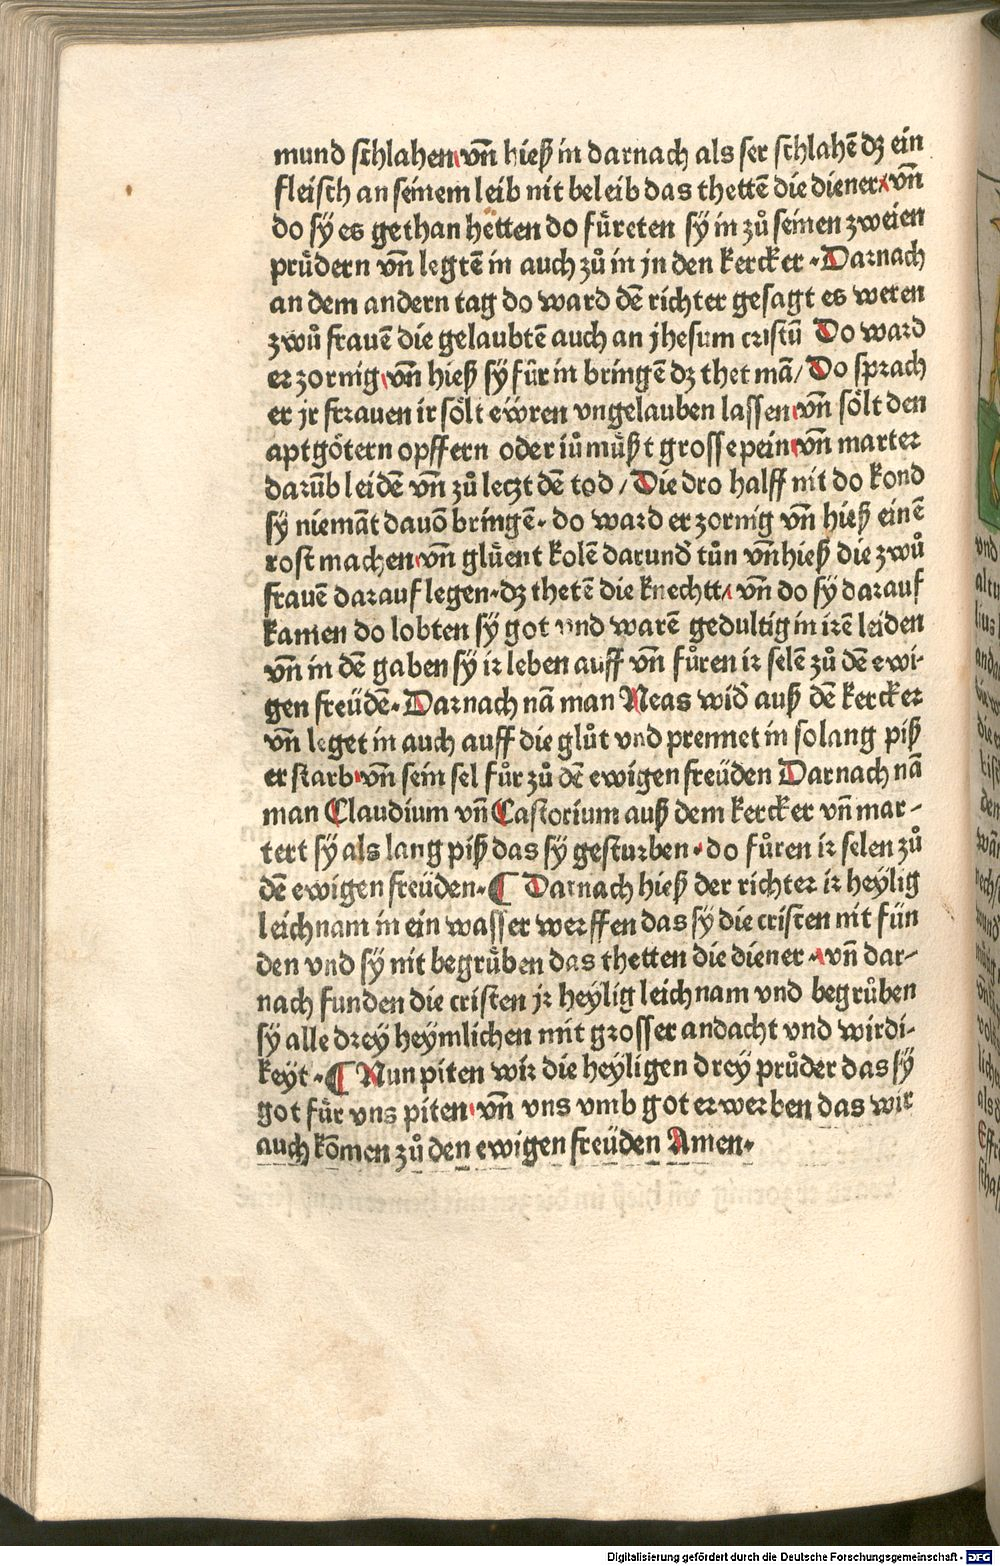 mund schlahen vñ hieß in darnach als ser schlahē dz ein
fleisch an seinem leib nit beleib das thettē die diener vñ
do sÿ es gethan hetten do fůreten sÿ in zů seinen zweien
průdern vñ legtē in auch zů in jn den kercker · Darnach
an dem andern tag do ward dē richter gesagt es weren
zwů frauē die gelaubtē auch an jhesum cristū Do ward
er zornig vñ hieß sÿ für in bringē dz thet mā / Do sprach
er jr frrauen ir sölt ewren vngelauben lassen vñ sölt den
aptgötern opffern oder iů můßt grosse pein vñ marter
darūb leidē vñ zů leczt dē tod / Die dro halff nit do kond
sÿ niemāt dauō bringē · do ward er zornig vñ hieß einē
rost machen vñ glůent kolē darund tůn vñ hieß die zwů
frauē darauf legen · dz thetē die knechtt vñ do sÿ darauf
kamen do lobten sÿ got vnd warē gedultig in irē leiden
vñ in dē gaben sÿ ir leben auff vñ fůren ir selē zů dē ewi-
gen freüdē · Darnach nā man Neas wid auß dē kercker
vñ leget in auch auff die glůt vnd prennet in solang piß
er starb vñ sein sel fůr zů dē ewigen freüden Darnach nā
man Claudium vñ Castorium auß dem kercker vñ mar-
tert sÿ als lang piß das sÿ gesturben · do fůren ir selen zů
dē ewigen freüden · ¶ Darnach hieß der richter ir heylig
leichnam in ein wasser werffen das sÿ die cristen nit fün
den vnd sÿ nit begrůben das thetten die diener · vñ dar-
nach funden die cristen jr heylig leichnam vnd begrůben
sÿ alle drey heymlichen mit grosser andacht vnd wirdi-
keyt · ¶ Nun piten wir die heyligen drey průder das sÿ
got für vns piten vñ vns vmb got erwerben das wir
auch kōmen zů den ewigen freüden Amen ·
Digitalisierung gefördert durch die Deutsche Forschungsgemeinschaft - DFG